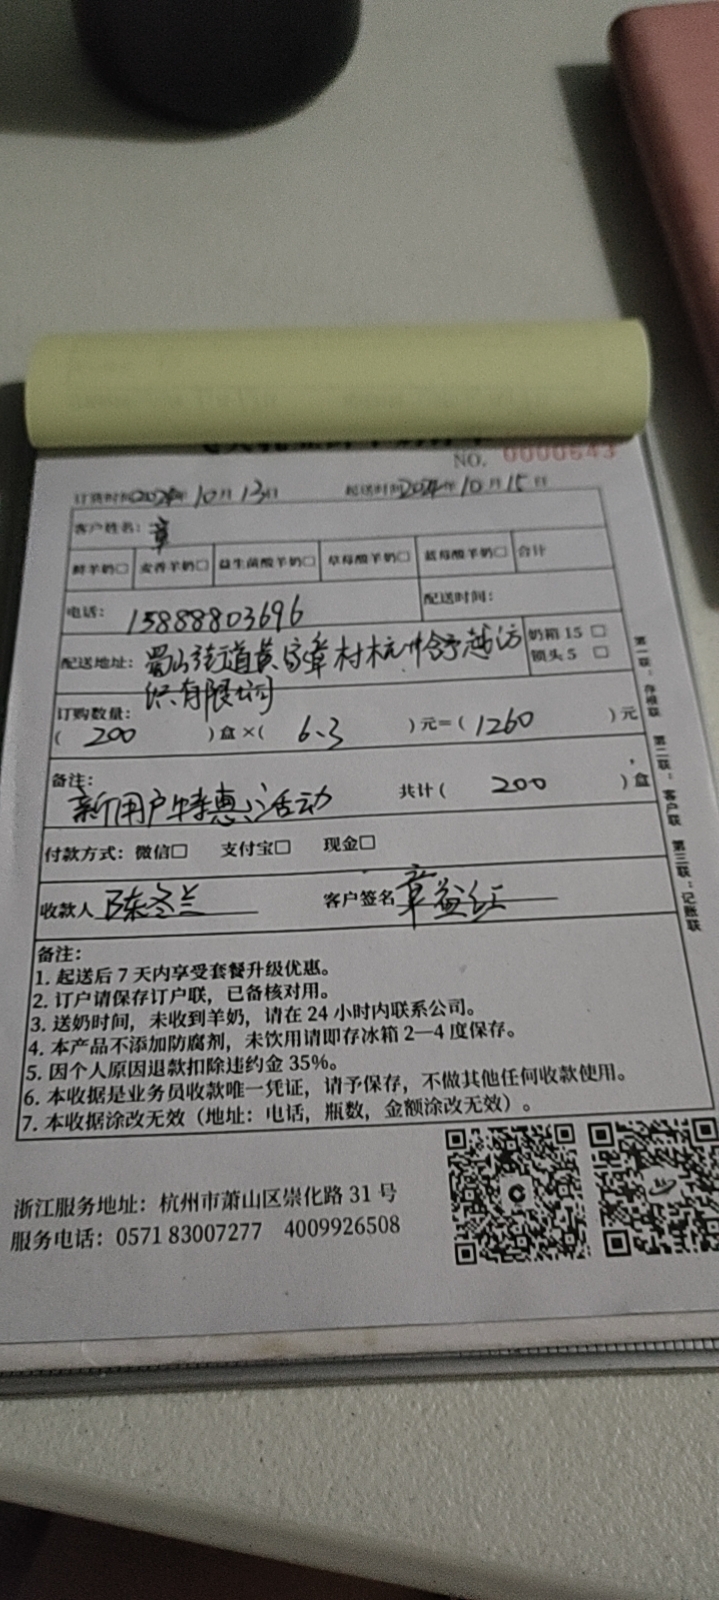 NO. 0000643
订货时间2024年10月13日 起送时间2024年10月15日
客户姓名：章
鲜羊奶□ 麦香羊奶□ 益生菌酸羊奶□ 草莓酸羊奶□ 蓝莓酸羊奶□ 合计
电话：15888803696 配送时间：
配送地址：蜀山街道黄家章村杭州舒越纺 奶箱 15 □
织有限公司 锁头 5 □
订购数量：
( 200 ) 盒 ×( 6.3 ) 元=( 1260 ) 元
备注：
新用户特惠 活动 共计( 200 ) 盒
付款方式：微信□ 支付宝□ 现金□
收款人 陈冬兰 客户签名 章益红
备注：
1. 起送后 7 天内享受套餐升级优惠。
2. 订户请保存订户联，已备核对用。
3. 送奶时间，未收到羊奶，请在 24 小时内联系公司。
4. 本产品不添加防腐剂，未饮用请即存冰箱 2—4 度保存。
5. 因个人原因退款扣除违约金 35%。
6. 本收据是业务员收款唯一凭证，请予保存，不做其他任何收款使用。
7. 本收据涂改无效（地址：电话，瓶数，金额涂改无效）。
第一联：存根联 第二联：客户联 第三联：记账联
浙江服务地址：杭州市萧山区崇化路 31 号
服务电话：0571 83007277 4009926508